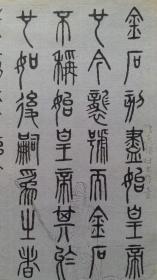 金石刻盡始皇帝
也今襲號而金石
不稱始皇帝其於
也如後嗣為之者